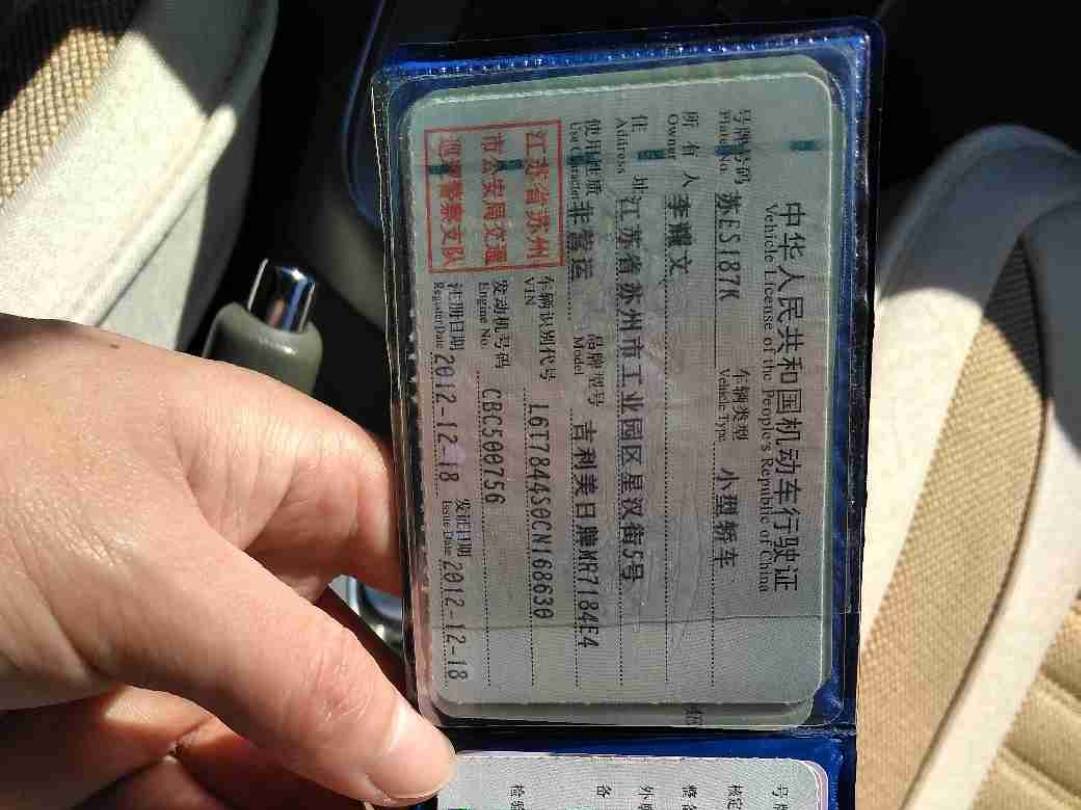 中华人民共和国机动车行驶证
Vehicle License of the People's Republic of China
号牌号码 苏ES187K 车辆类型 小型轿车
Plate No. Vehicle Type
所有人 李耀文
Owner
住址 江苏省苏州市工业园区星汉街5号
Address
使用性质 非营运 品牌型号 吉利美日牌MR7184E4
Use Character Model
江苏省苏州
市公安局交通
巡逻警察支队
车辆识别代号 L6T7844S0CN168630
VIN
发动机号码 CBC500756
Engine No.
注册日期 2012-12-18 发证日期 2012-12-18
Register Date Issue Date
号牌
核定
整备
外廓
备
检验